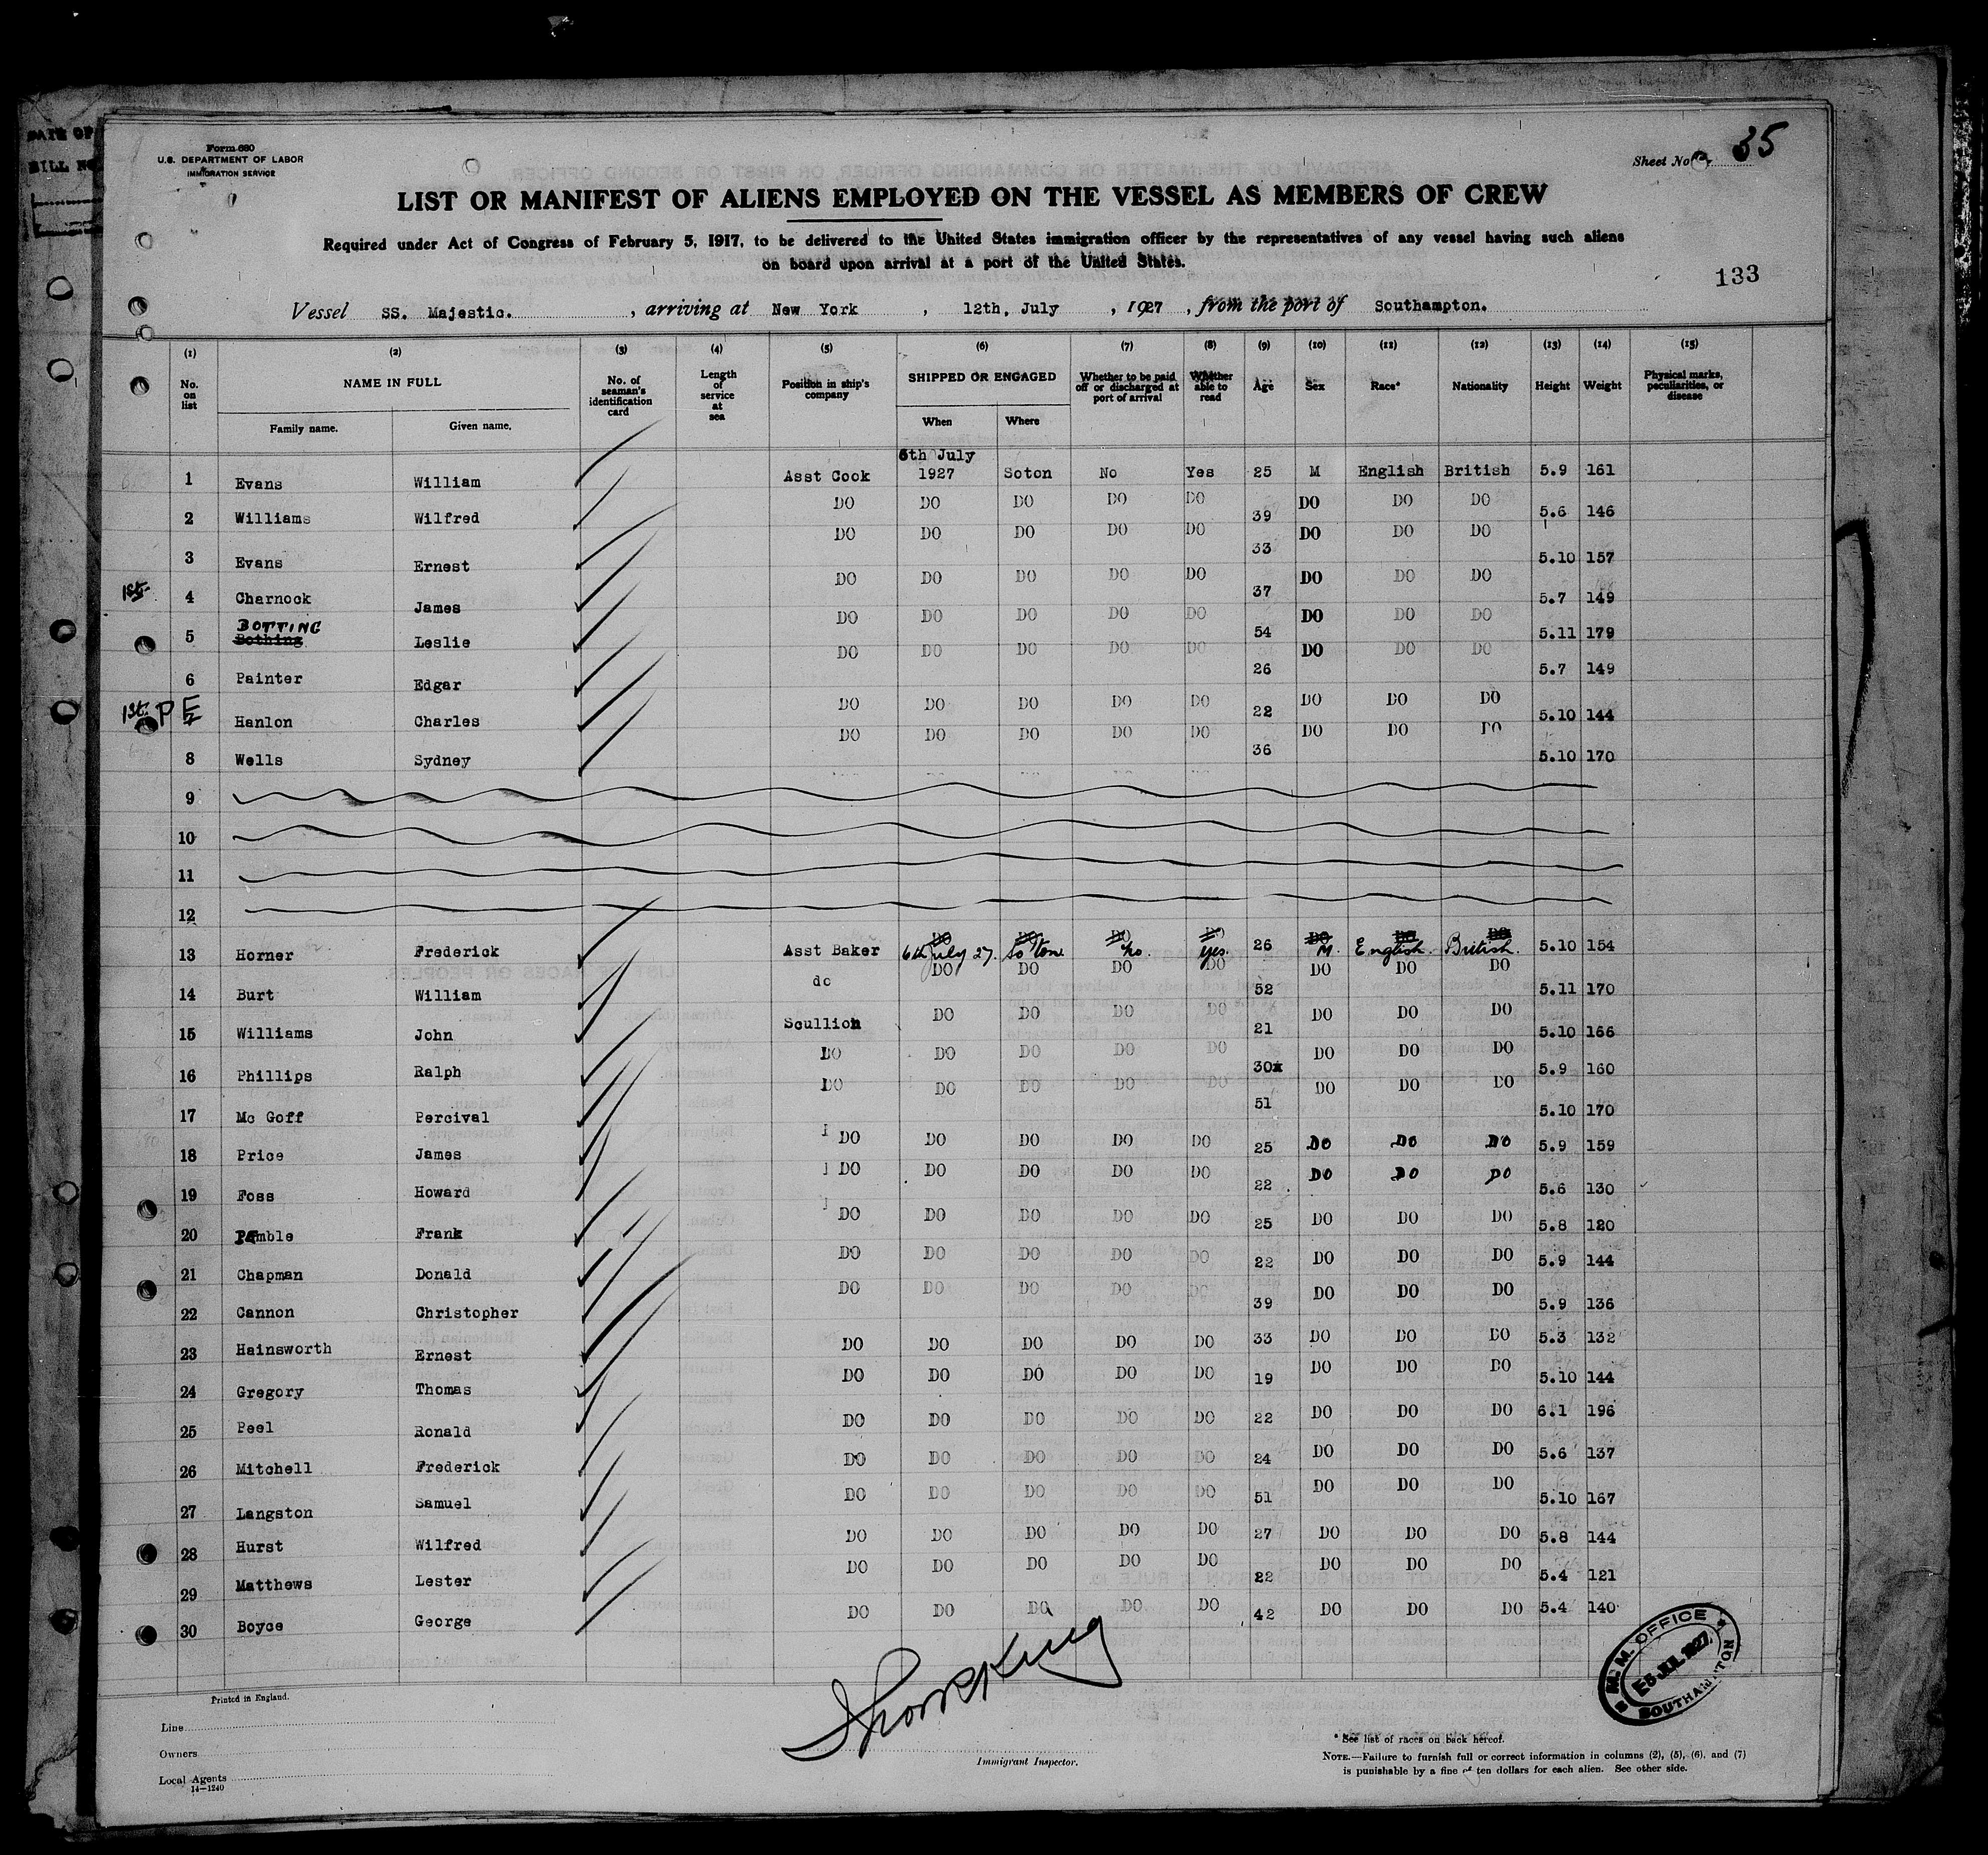 DATE OF
BILL NO
Form 680
U.S. DEPARTMENT OF LABOR
IMMIGRATION SERVICE
Sheet No. 35
LIST OR MANIFEST OF ALIENS EMPLOYED ON THE VESSEL AS MEMBERS OF CREW
Required under Act of Congress of February 5, 1917, to be delivered to the United States immigration officer by the representatives of any vessel having such aliens
on board upon arrival at a port of the United States.
133
Vessel SS. Majestic. , arriving at New York , 12th, July , 1927 , from the port of Southampton.
(1) (2) (3) (4) (5) (6) (7) (8) (9) (10) (11) (12) (13) (14) (15)
No. on list NAME IN FULL No. of seaman's identification card Length of service at sea Position in ship's company SHIPPED OR ENGAGED Whether to be paid off or discharged at port of arrival Whether able to read Age Sex Race* Nationality Height Weight Physical marks, peculiarities, or disease
Family name. Given name. When Where
6th July
1 Evans William Asst Cook 1927 Soton No Yes 25 M English British 5.9 161
2 Williams Wilfred DO DO DO DO DO 39 DO DO DO 5.6 146
3 Evans Ernest DO DO DO DO DO 33 DO DO DO 5.10 157
1st. 4 Charnock James DO DO DO DO DO 37 DO DO DO 5.7 149
BOTTING
5 Bothing Leslie DO DO DO DO DO 54 DO DO DO 5.11 179
6 Painter Edgar DO DO DO DO DO 26 DO DO DO 5.7 149
1st. P E 7 Hanlon Charles DO DO DO DO DO 22 DO DO DO 5.10 144
8 Wells Sydney DO DO DO DO DO 36 DO DO DO 5.10 170
9
10
11
12
DO DO DO DO DO DO DO
13 Horner Frederick Asst Baker 6th July 27. So'ton. No. Yes. 26 M. English. British. 5.10 154
14 Burt William do DO DO DO DO 52 DO DO DO 5.11 170
15 Williams John Scullion DO DO DO DO 21 DO DO DO 5.10 166
16 Phillips Ralph DO DO DO DO DO 30x DO DO DO 5.9 160
17 Mc Goff Percival DO DO DO DO DO 51 DO DO DO 5.10 170
18 Price James DO DO DO DO DO 25 DO DO DO 5.9 159
19 Foss Howard DO DO DO DO DO 22 DO DO DO 5.6 130
20 Pemble Frank DO DO DO DO DO 25 DO DO DO 5.8 120
21 Chapman Donald DO DO DO DO DO 22 DO DO DO 5.9 144
22 Cannon Christopher DO DO DO DO DO 39 DO DO DO 5.9 136
23 Hainsworth Ernest DO DO DO DO DO 33 DO DO DO 5.3 132
24 Gregory Thomas DO DO DO DO DO 19 DO DO DO 5.10 144
25 Peel Ronald DO DO DO DO DO 22 DO DO DO 6.1 196
26 Mitchell Frederick DO DO DO DO DO 24 DO DO DO 5.6 137
27 Langston Samuel DO DO DO DO DO 51 DO DO DO 5.10 167
28 Hurst Wilfred DO DO DO DO DO 27 DO DO DO 5.8 144
29 Matthews Lester DO DO DO DO DO 22 DO DO DO 5.4 121
30 Boyce George DO DO DO DO DO 42 DO DO DO 5.4 140
M. M. OFFICE
E5 JUL 1927
SOUTHAMPTON
Printed in England.
Line
Owners
Local Agents
14—1240
Immigrant Inspector.
* See list of races on back hereof.
NOTE.—Failure to furnish full or correct information in columns (2), (5), (6), and (7)
is punishable by a fine of ten dollars for each alien. See other side.